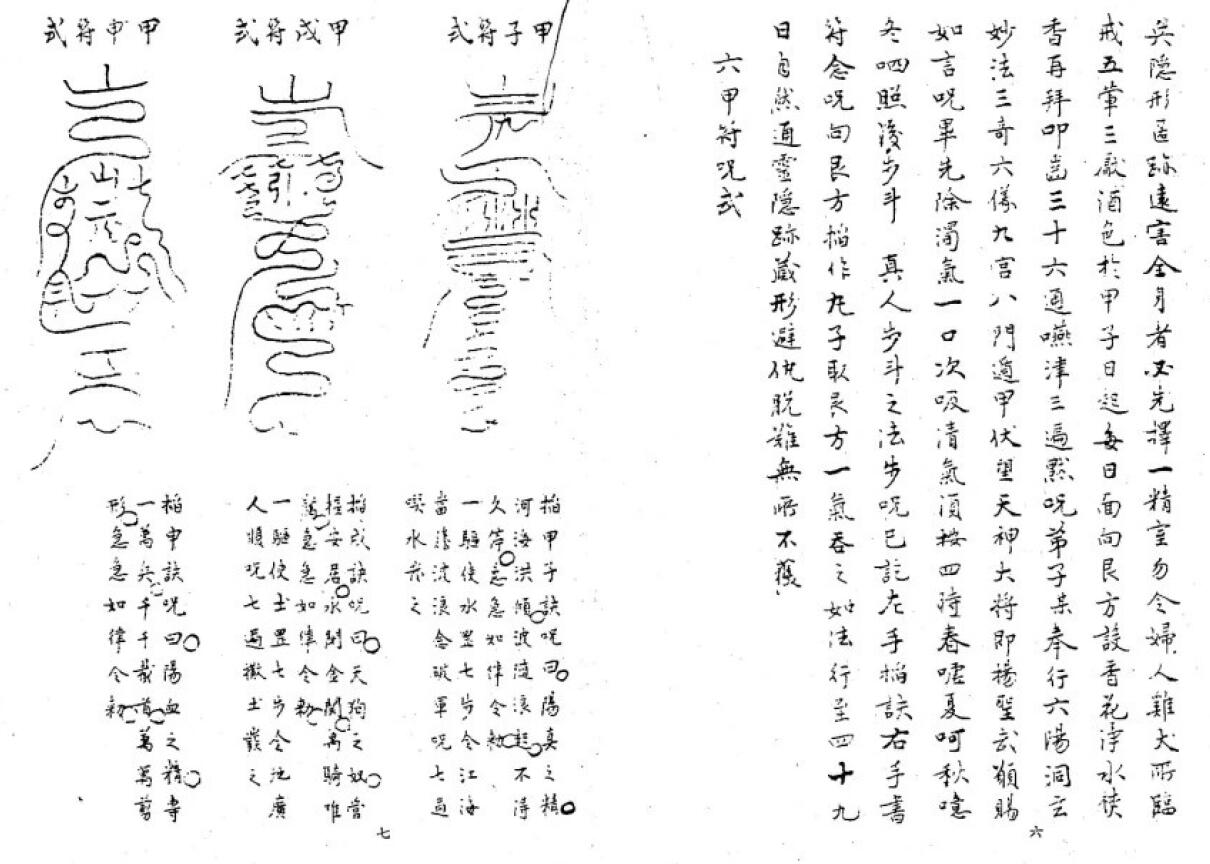 兵隐形匿跡遠害全身者必先擇一精室勿令婦人雞犬所臨
戒五葷三厭酒色於甲子日起每日面向艮方設香花淨水
香再拜叩齒三十六通嚥津三遍黙呪弟子某奉行六陽洞玄
妙法三奇六儀九宮八門遁甲伏望天神大將即揚聖武願賜
如言呪畢先除濁氣一口次吸清氣須按四時春噓夏呵秋噫
冬呬照後步斗 真人步斗之法步呪已訖左手掐訣右手書
符念呪向艮方掐作丸子取艮方一氣吞之如法行至四十九
日自然通靈隱跡藏形避仇脫難無所不獲
六甲符呪式
六
甲子符式
掐甲子訣呪曰陽真之精
河海洪傾波漣浪起不得
久停急急如律令勑
一驅使水罡七步令江海
當濤波浪念破軍呪七遍
噀水一口
甲戌符式
掐戌訣呪曰天狗之奴當
安居水開金関萬騎唯
急急如律令勑
一驅使土罡七步令
人狼呪七遍撒土
甲申符式
掐申訣呪曰陽血之精
一萬兵千千截首萬萬剪
形急急如律令勑
七